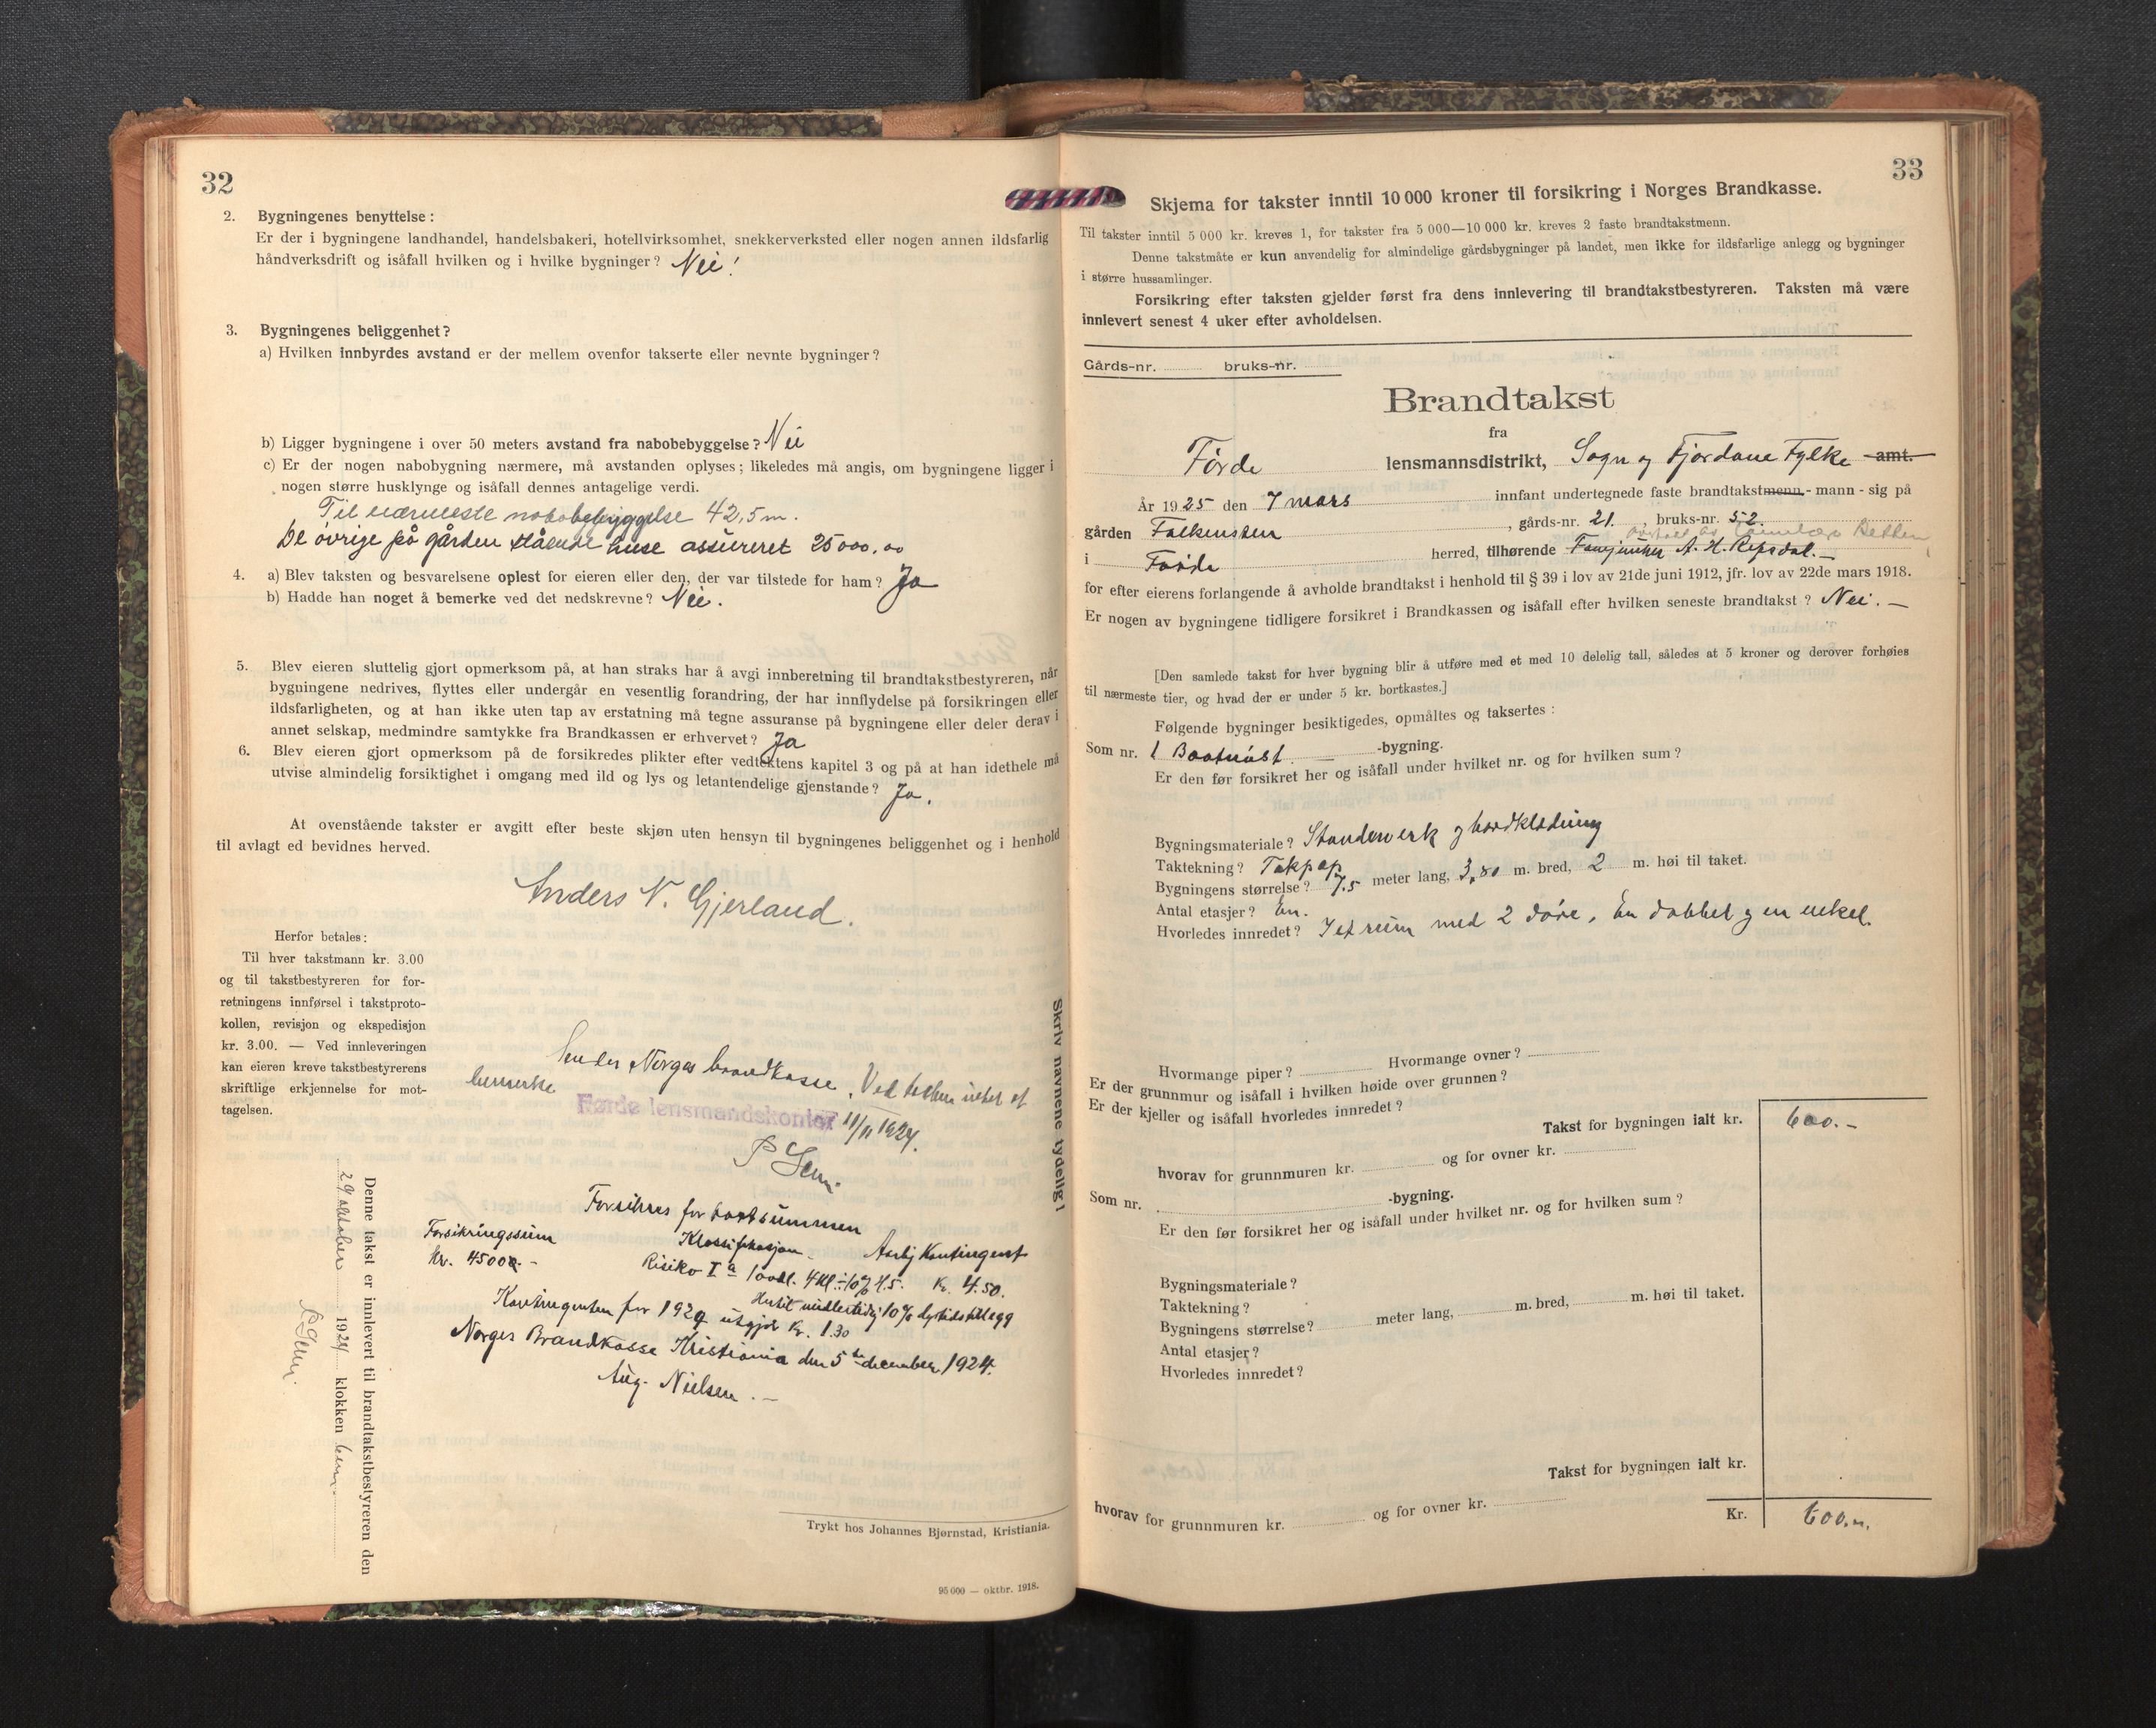 32
2. Bygningenes benyttelse:
Er der i bygningene landhandel, handelsbakeri, hotellvirksomhet, snekkerverksted eller nogen annen ildsfarlig
håndverksdrift og isåfall hvilken og i hvilke bygninger? Nei!
3. Bygningenes beliggenhet?
a) Hvilken innbyrdes avstand er der mellem ovenfor takserte eller nevnte bygninger?
b) Ligger bygningene i over 50 meters avstand fra nabobebyggelse? Nei
c) Er der nogen nabobygning nærmere, må avstanden oplyses; likeledes må angis, om bygningene ligger i
nogen større husklynge og isåfall dennes antagelige verdi.
Til nærmeste nabobebyggelse 42,5 m.
De øvrige på gården stående huse assureret 25000.00
4. a) Blev taksten og besvarelsene oplest for eieren eller den, der var tilstede for ham? Ja
b) Hadde han noget å bemerke ved det nedskrevne? Nei.
5. Blev eieren sluttelig gjort opmerksom på, at han straks har å avgi innberetning til brandtakstbestyreren, når
bygningene nedrives, flyttes eller undergår en vesentlig forandring, der har innflydelse på forsikringen eller
ildsfarligheten, og at han ikke uten tap av erstatning må tegne assuranse på bygningene eller deler derav i
annet selskap, medmindre samtykke fra Brandkassen er erhvervet? Ja
6. Blev eieren gjort opmerksom på de forsikredes plikter efter vedtektens kapitel 3 og på at han idethele må
utvise almindelig forsiktighet i omgang med ild og lys og letantendelige gjenstande? Ja.
At ovenstående takster er avgitt efter beste skjøn uten hensyn til bygningenes beliggenhet og i henhold
til avlagt ed bevidnes herved.
Anders N. Gjerland.
Herfor betales:
Til hver takstmann kr. 3.00
og til takstbestyreren for for-
retningens innførsel i takstproto-
kollen, revisjon og ekspedisjon
kr. 3.00. — Ved innleveringen
kan eieren kreve takstbestyrerens
skriftlige erkjennelse for mot-
tagelsen.
Sendes Norges brandkasse. Ved taksten intet at
bemerke
Førde lensmandskontor 11/11 1924.
Forsikres for takstsummen
Forsikringssum Klassifikasjon Aarlig Kontingent
Kr. 4500.- Risiko I a 4 kl. ÷ 10% Kr. 4.50.
Hertil midlertidig 10% dyrtidstillegg
Kontingenten for 1924 utgjør Kr. 1.30
Norges Brandkasse Kristiania den 5te december 1924.
Aug. Nielsen.-
Denne takst er innlevert til brandtakstbestyreren den
29 oktober 1924 klokken
Skriv navnene tydelig!
Trykt hos Johannes Bjørnstad, Kristiania.
95 000 — oktbr. 1918.
33
Skjema for takster inntil 10 000 kroner til forsikring i Norges Brandkasse.
Til takster inntil 5 000 kr. kreves 1, for takster fra 5 000—10 000 kr. kreves 2 faste brandtakstmenn.
Denne takstmåte er kun anvendelig for almindelige gårdsbygninger på landet, men ikke for ildsfarlige anlegg og bygninger
i større hussamlinger.
Forsikring efter taksten gjelder først fra dens innlevering til brandtakstbestyreren. Taksten må være
innlevert senest 4 uker efter avholdelsen.
Gårds-nr. bruks-nr.
Brandtakst
fra
Førde lensmannsdistrikt, Sogn og Fjordane Fylke amt.
År 1925 den 7 mars innfant undertegnede faste brandtakstmenn - mann - sig på
gården Falkensten, gårds-nr. 21., bruks-nr. 52.
i Førde herred, tilhørende Fanejunker A. H. Repsdal.-
for efter eierens forlangende å avholde brandtakst i henhold til § 39 i lov av 21de juni 1912, jfr. lov av 22de mars 1918.
Er nogen av bygningene tidligere forsikret i Brandkassen og isåfall efter hvilken seneste brandtakst? Nei.-
[Den samlede takst for hver bygning blir å utføre med et med 10 delelig tall, således at 5 kroner og derover forhøies
til nærmeste tier, og hvad der er under 5 kr. bortkastes.]
Følgende bygninger besiktigedes, opmåltes og taksertes:
Som nr. 1 Baatnøst -bygning.
Er den før forsikret her og isåfall under hvilket nr. og for hvilken sum?
Bygningsmateriale? Standerverk og bordklædning
Taktekning? Takpap
Bygningens størrelse? 7.5 meter lang, 3,80 m. bred, 2 m. høi til taket.
Antal etasjer? En.
Hvorledes innredet? I et rum med 2 døre, En dobbel og en enkel.
Hvormange piper? Hvormange ovner?
Er der grunnmur og isåfall i hvilken høide over grunnen?
Er der kjeller og isåfall hvorledes innredet?
Takst for bygningen ialt kr. 600.-
hvorav for grunnmuren kr. og for ovner kr.
Som nr. -bygning.
Er den før forsikret her og isåfall under hvilket nr. og for hvilken sum?
Bygningsmateriale?
Taktekning?
Bygningens størrelse? meter lang, m. bred, m. høi til taket.
Antal etasjer?
Hvorledes innredet?
Takst for bygningen ialt kr.
hvorav for grunnmuren kr. og for ovner kr.
Kr. 600.